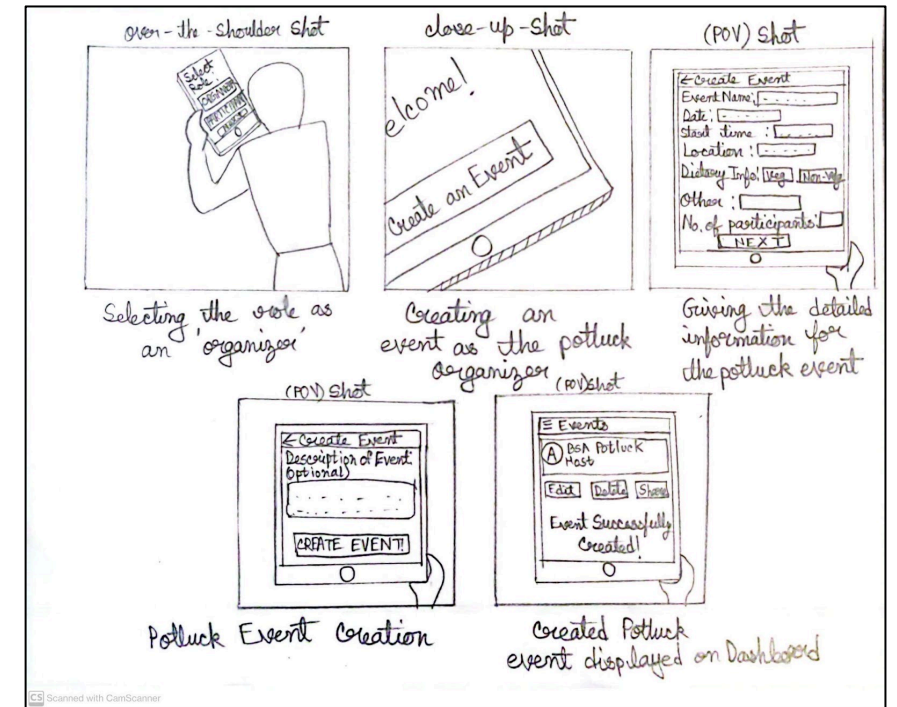 over-the-shoulder shot
Select
Role:
ORGANIZER
PARTICIPANT
Selecting the role as
an 'organizer'
close-up-shot
elcome!
Create an Event
Creating an
event as the potluck
organizer
(POV) Shot
← Create Event
Event Name:
Date:
Start time :
Location :
Dietary Info: Veg Non-Veg
Other :
No. of participants:
NEXT
Giving the detailed
information for
the potluck event
(POV) Shot
← Create Event
Description of Event:
Optional)
CREATE EVENT!
Potluck Event Creation
(POV)shot
☰ Events
A BSA Potluck
Host
Edit Delete Share
Event Successfully
Created!
Created Potluck
event displayed on Dashboard
CS Scanned with CamScanner